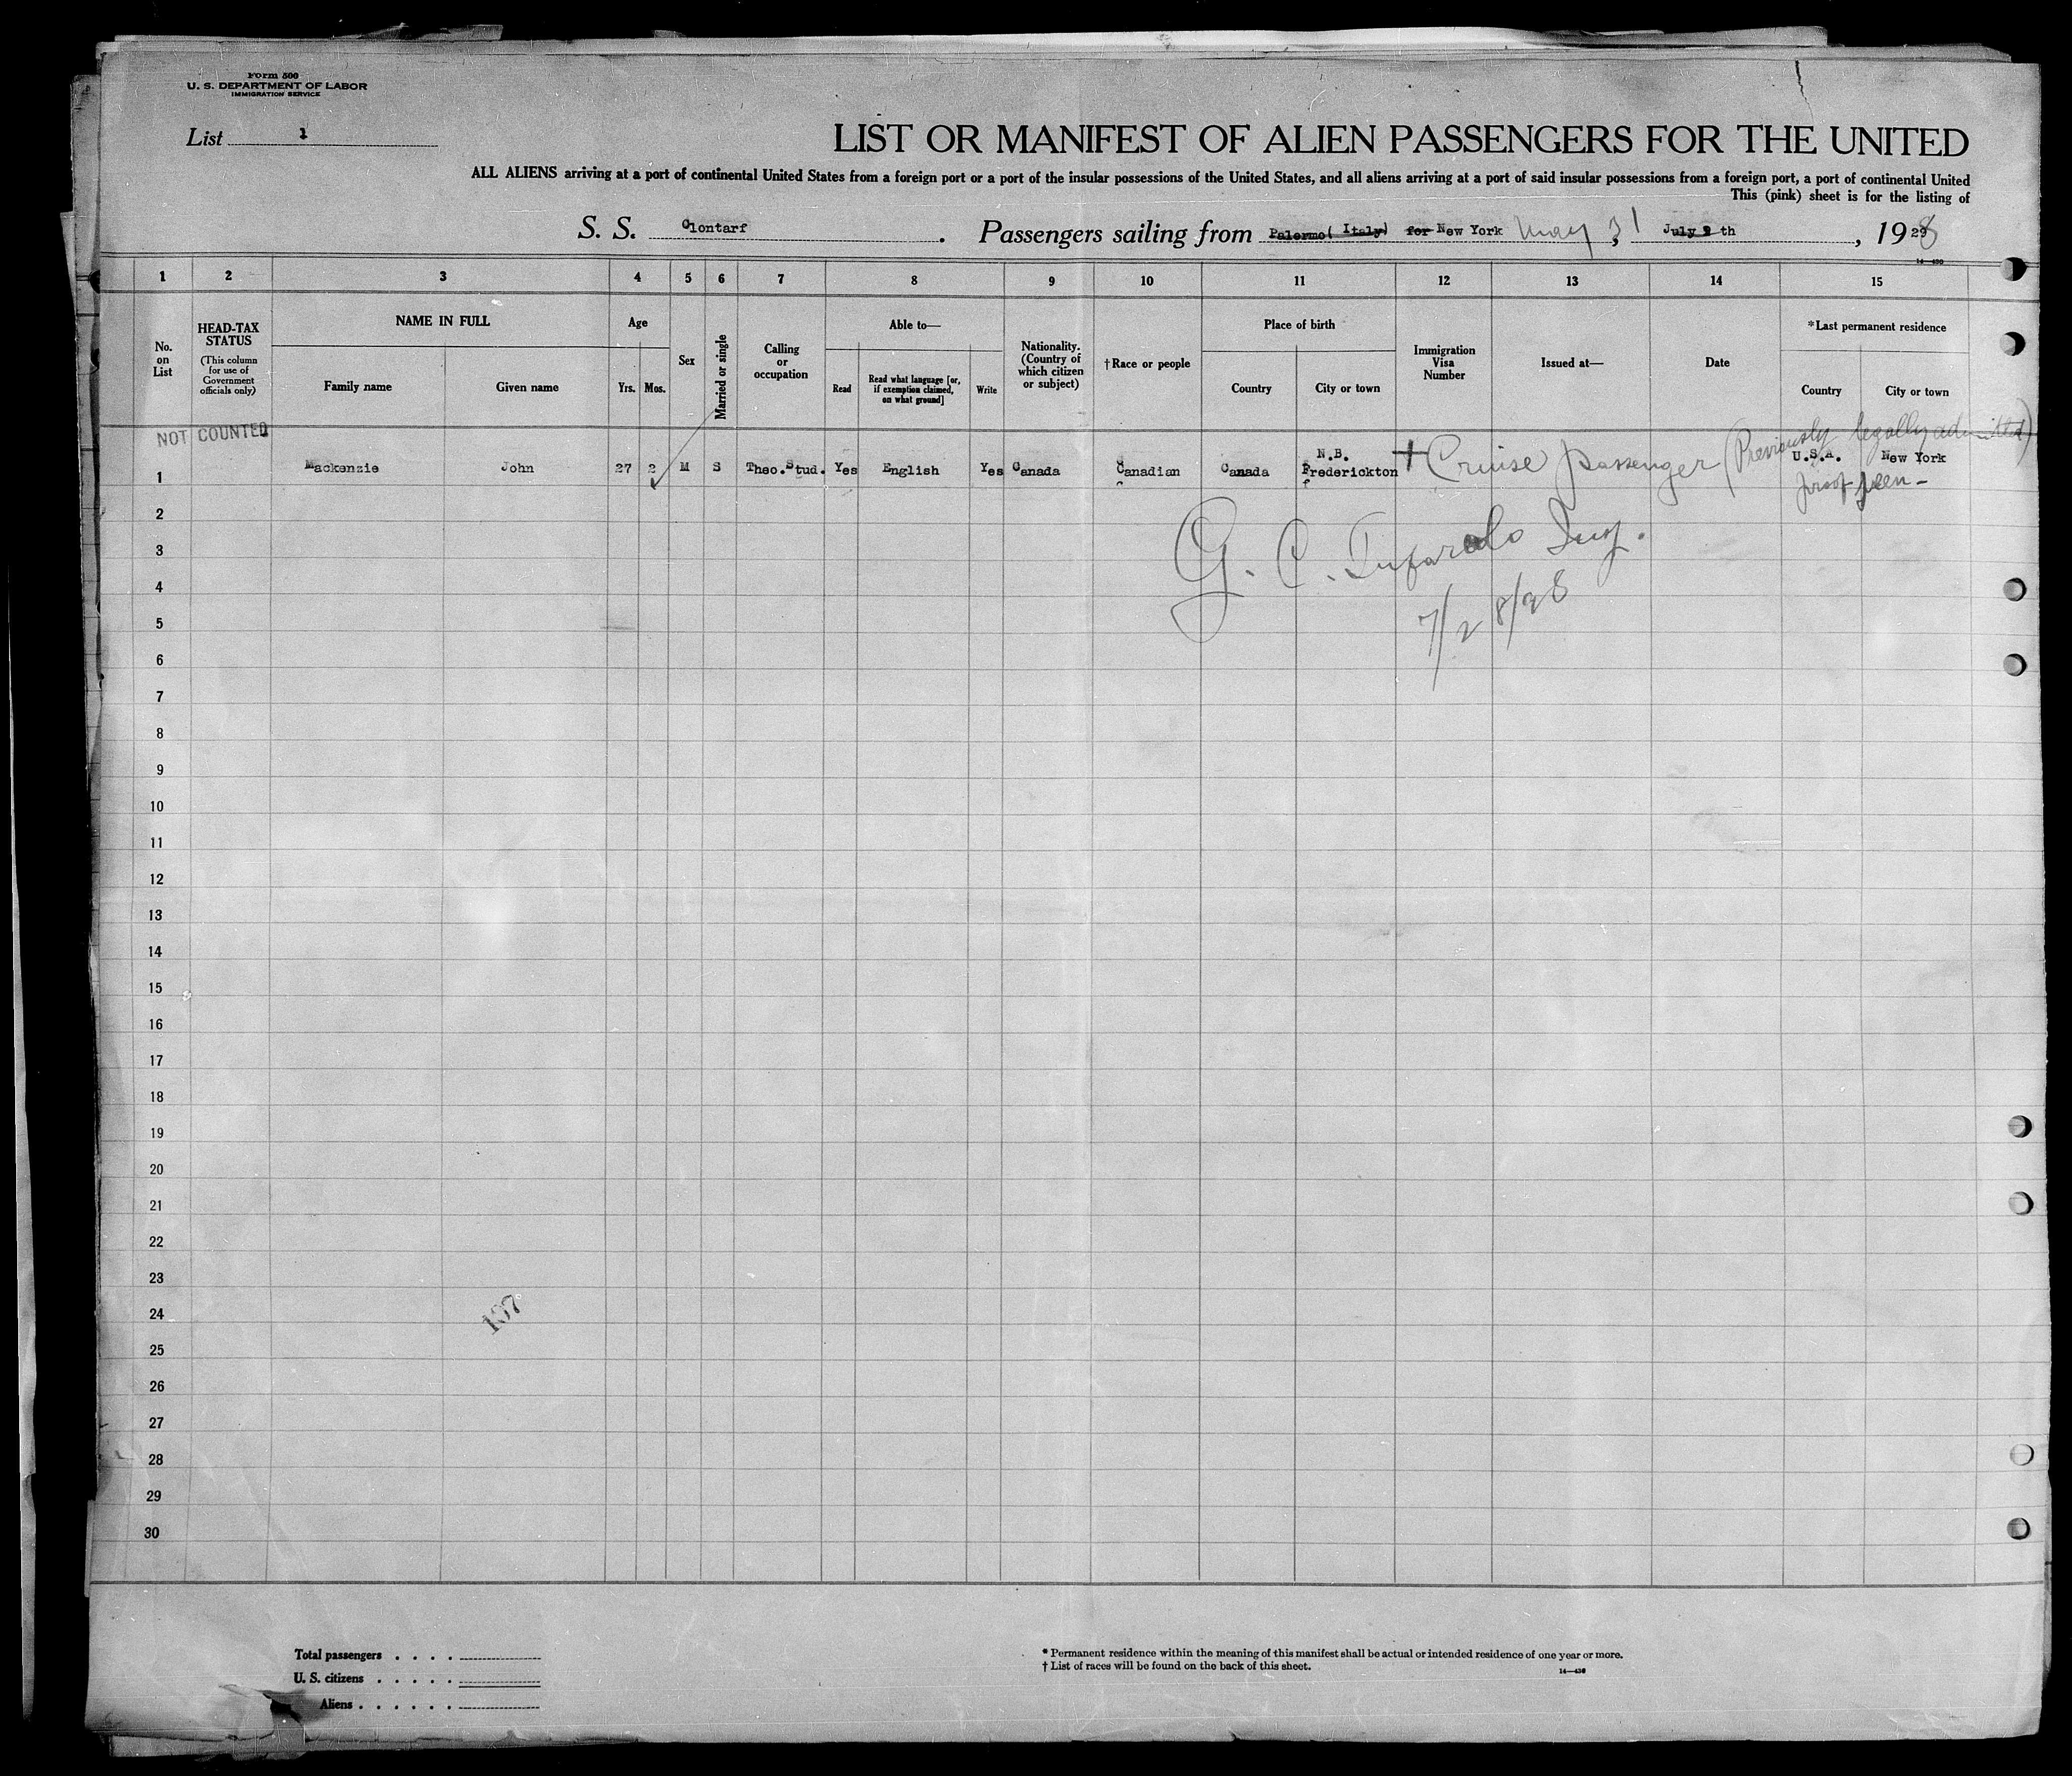 Form 500
U. S. DEPARTMENT OF LABOR
IMMIGRATION SERVICE
List 1
LIST OR MANIFEST OF ALIEN PASSENGERS FOR THE UNITED
ALL ALIENS arriving at a port of continental United States from a foreign port or a port of the insular possessions of the United States, and all aliens arriving at a port of said insular possessions from a foreign port, a port of continental United
This (pink) sheet is for the listing of
S. S. Clontarf. Passengers sailing from Palermo( Italy) for New York May 31, July th, 1928
14—430
1 2 3 4 5 6 7 8 9 10 11 12 13 14 15
No. on List
HEAD-TAX STATUS
(This column for use of Government officials only)
NAME IN FULL
Family name
Given name
Age
Yrs.
Mos.
Sex
Married or single
Calling or occupation
Able to—
Read
Read what language [or, if exemption claimed, on what ground]
Write
Nationality. (Country of which citizen or subject)
†Race or people
Place of birth
Country
City or town
Immigration Visa Number
Issued at—
Date
*Last permanent residence
Country
City or town
NOT COUNTED
1 Mackenzie John 27 2 M S Theo.Stud. Yes English Yes Canada Canadian Canada N.B. Frederickton Cruise passenger (Previously legally admitted) U.S.A. New York
proof seen -
G. C. Inf.
7/28/28
2
3
4
5
6
7
8
9
10
11
12
13
14
15
16
17
18
19
20
21
22
23
24
25
26
27
28
29
30
Total passengers . . . .
U. S. citizens . . . . .
Aliens . . . . . .
* Permanent residence within the meaning of this manifest shall be actual or intended residence of one year or more.
† List of races will be found on the back of this sheet.
14—430